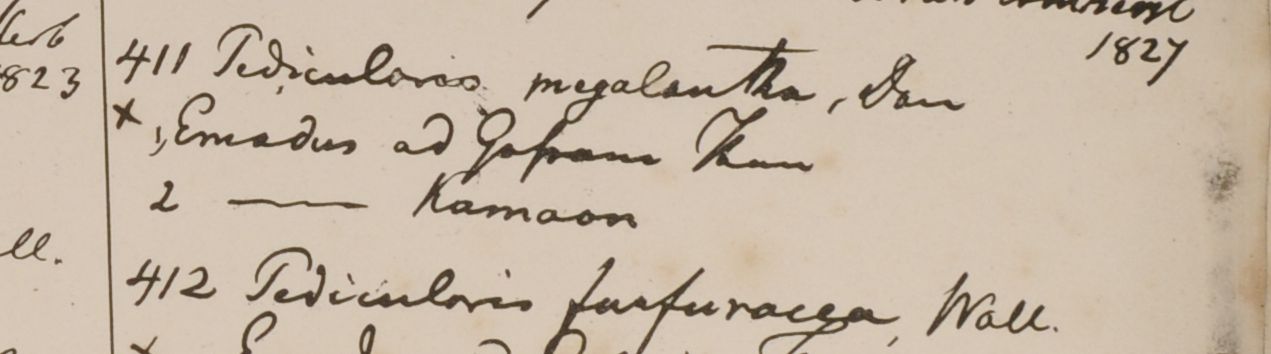 1823
ll.
1827
411 Pedicularis megalantha, Don
x 1, Emodus ad Gosain Than
2 —— Kamaon
412 Pedicularis furfuracea, Wall.